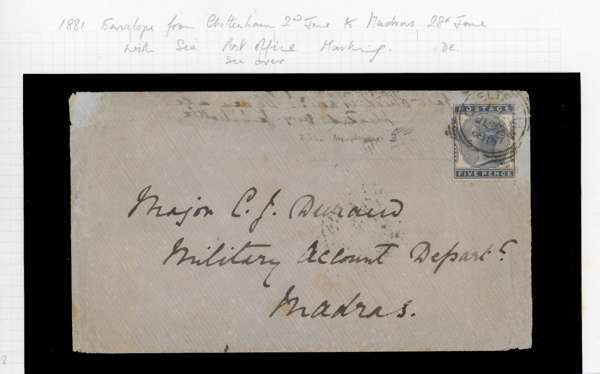 1881 Envelope from Cheltenham 2nd June to Madras 28th June
with Sea Post Office Marking. DE.
See over
POSTAGE
FIVE PENCE
Major C. J. Durand
Military Account Depart.
Madras.